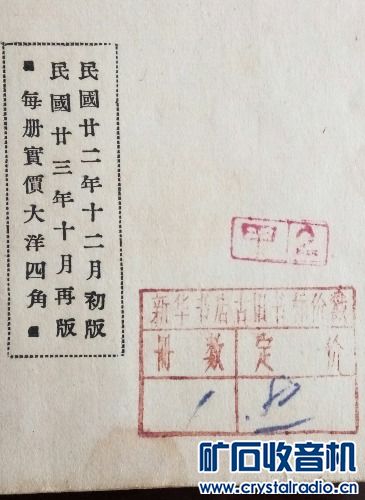 民國廿二年十二月初版
民國廿三年十月再版
每册實價大洋四角
新华书店古旧书标价签
册数 定价
1 .80
矿石收音机
www.crystalradio.cn